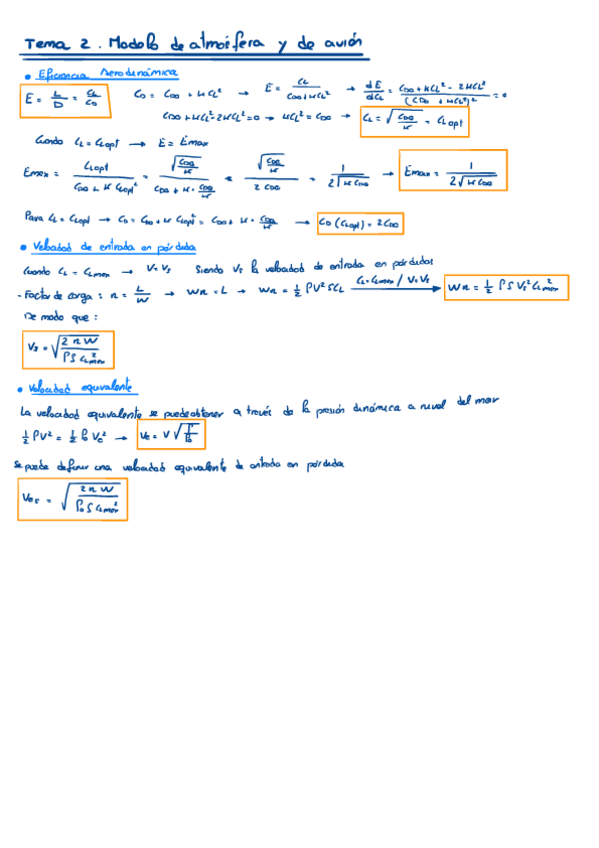 Tema 2. Modelo de atmósfera y de avión
• Eficiencia Aerodinámica
E = L/D = CL/CD   CD = CD0 + kCL² → E = CL/(CD0+kCL²) → dE/dCL = (CD0+kCL² - 2kCL²)/(CD0 + kCL²)² = 0
CD0+kCL²-2kCL²=0 → kCL² = CD0 → CL = √(CD0/k) = CLopt
Cuando CL = CLopt → E = Emax
Emax = CLopt/(CD0 + k CLopt²) = √(CD0/k)/(CD0 + k · CD0/k) = √(CD0/k)/(2 CD0) = 1/(2√(k CD0)) → Emax = 1/(2√(k CD0))
Para CL = CLopt → CD = CD0 + k CLopt² = CD0 + k · CD0/k → CD (CLopt) = 2CD0
• Velocidad de entrada en pérdida
Cuando CL = CLmax → V = Vs   Siendo Vs la velocidad de entrada en pérdida
- Factor de carga : n = L/W → Wn = L → Wn = ½ ρV²SCL   CL=CLmax / V=Vs → Wn = ½ ρSVs²CLmax
De modo que :
Vs = √(2nW/(ρSCLmax))
• Velocidad equivalente
La velocidad equivalente se puede obtener a través de la presión dinámica a nivel del mar
½ρV² = ½ρ0Ve² → Ve = V√(ρ/ρ0)
Se puede definir una velocidad equivalente de entrada en pérdida
Ves = √(2nW/(ρ0SCLmax))